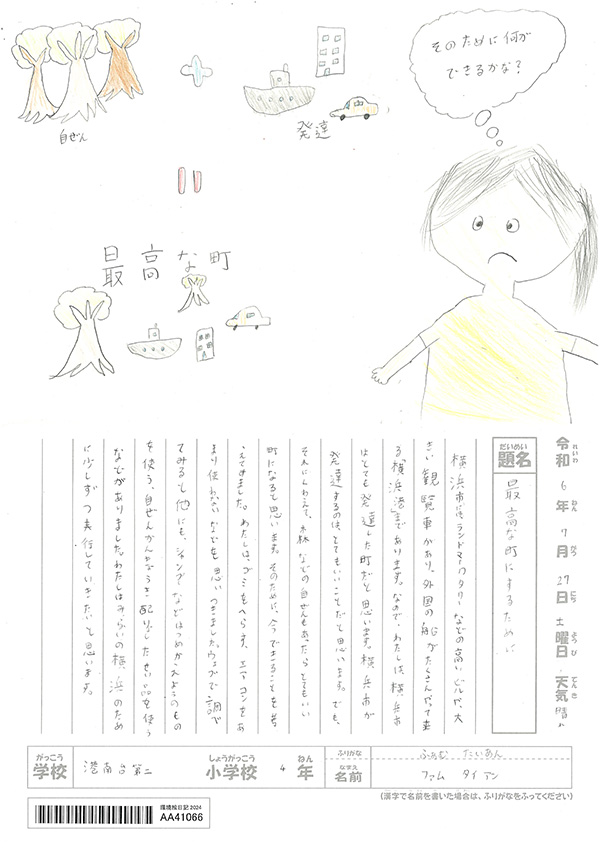 そのために何が
できるかな?
自ぜん
発達
最高な町
令和6年7月27日土曜日・天気晴れ
れいわ ねん がつ にち ようび てんき
だいめい
題名 最高な町にするために
横浜市にはランドマークタワーなどの高いビルが、大
きい観覧車があり。外国の船がたくさんやって来
る「横浜港」まであります。なので、わたしは、横浜市
はとても発達した町だと思います。横浜市が
発達するのは、とてもいいことだと思います。でも、
それにくわえて、森などの自ぜんもあったらとてもいい
町になると思います。そのために、今できることを考
えてみました。わたしは、ゴミをへらす、エアコンをあ
まり使わないなどを思いつきました。ウェブで調べ
てみると他にも、シャンプーなどはつめかえようのもの
を使う、自ぜんかんきょうにき配りしたせい品を使う
などがありました。わたしはみらいの横浜のため
に少しずつ実行していきたいと思います。
がっこう しょうがっこう ねん
学校 港南台第二 小学校 4年
ふりがな ふぁむ たいあん
なまえ
名前 ファム タイアン
(漢字で名前を書いた場合は、ふりがなをふってください)
環境絵日記2024
AA41066